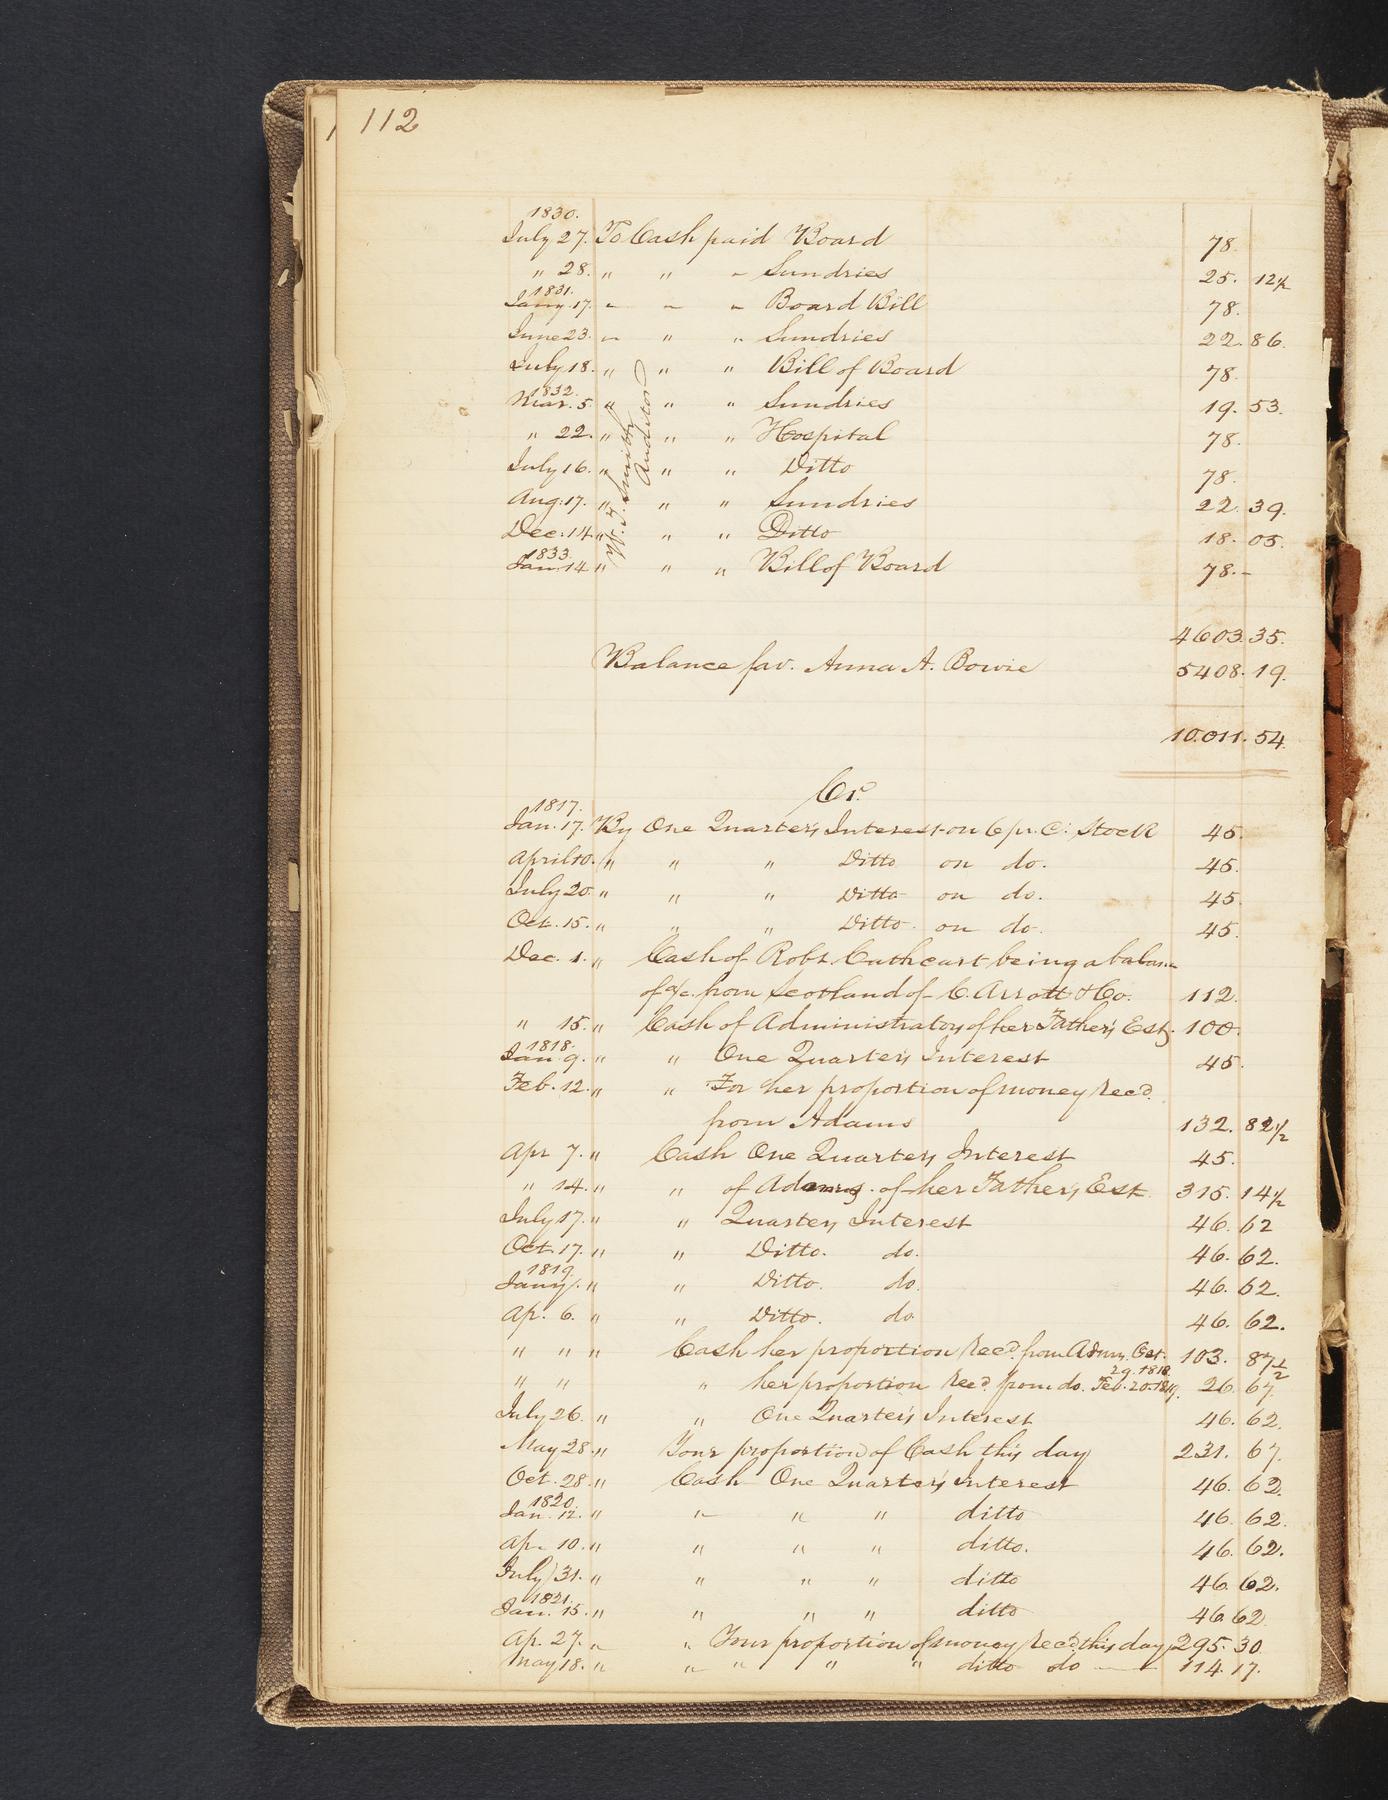 112
1830.
July 27. To Cash paid Board 78.
" 28. " " " Sundries 25. 12½
1831.
Jany. 17. " " " Board Bill 78.
June 23. " " " Sundries 22. 86.
July 18. " " " Bill of Board 78.
1832.
Mar. 5. " " " Sundries 19. 53.
" 22. " " " Hospital 78.
July 16. " " " Ditto 78.
Aug. 17. " " " Sundries 22. 39.
Dec. 14. " " " Ditto 18. 05.
1833.
Jan. 14 " " " Bill of Board 78.-
W. J. Smith
Auditor
4603. 35.
Balance fav. Anna A. Bowie 5408. 19.
10.011. 54
Cr.
1817.
Jan. 17. By One Quarter's Interest on 6 pr. C: Stock 45.
April 10. " " " Ditto on do. 45.
July 20. " " " Ditto on do. 45.
Oct. 15. " " " Ditto on do. 45.
Dec. 1. " Cash of Robt. Cathcart being a balan
of a/c. from Scotland of C. Arrott & Co. 112.
" 15. " Cash of Administrators of her Father's Est. 100.
1818.
Jan. 9. " " One Quarter's Interest 45.
Feb. 12. " " For her proportion of money Rec'd.
from Adams 132. 82½
Apr 7. " Cash One Quarter's Interest 45.
" 14. " " of of her Father's Est. 315. 14½
July 17. " " Quarter's Interest 46. 62
Oct. 17. " " Ditto. do. 46. 62.
1819.
Jany. " " Ditto. do. 46. 62.
Ap. 6. " " Ditto. do 46. 62.
" " " Cash her proportion Rec'd. from Admrs. Oct. 29. 1818. 103. 87½
" " " her proportion Rec'd. from do. Feb. 20. 1819. 26. 67.
July 26. " " One Quarter's Interest 46. 62.
May 28 " Your proportion of Cash this day 231. 67.
Oct. 28. " Cash One Quarter's Interest 46. 62.
1820.
Jan. 12. " " " " ditto 46. 62.
Ap. 10. " " " " ditto. 46. 62.
July 31. " " " " ditto 46. 62.
1821.
Jan. 15. " " " " ditto 46. 62
Ap. 27. " " Your proportion of money Rec'd. this day 295. 30.
May 18. " " " " " ditto do 114. 17.